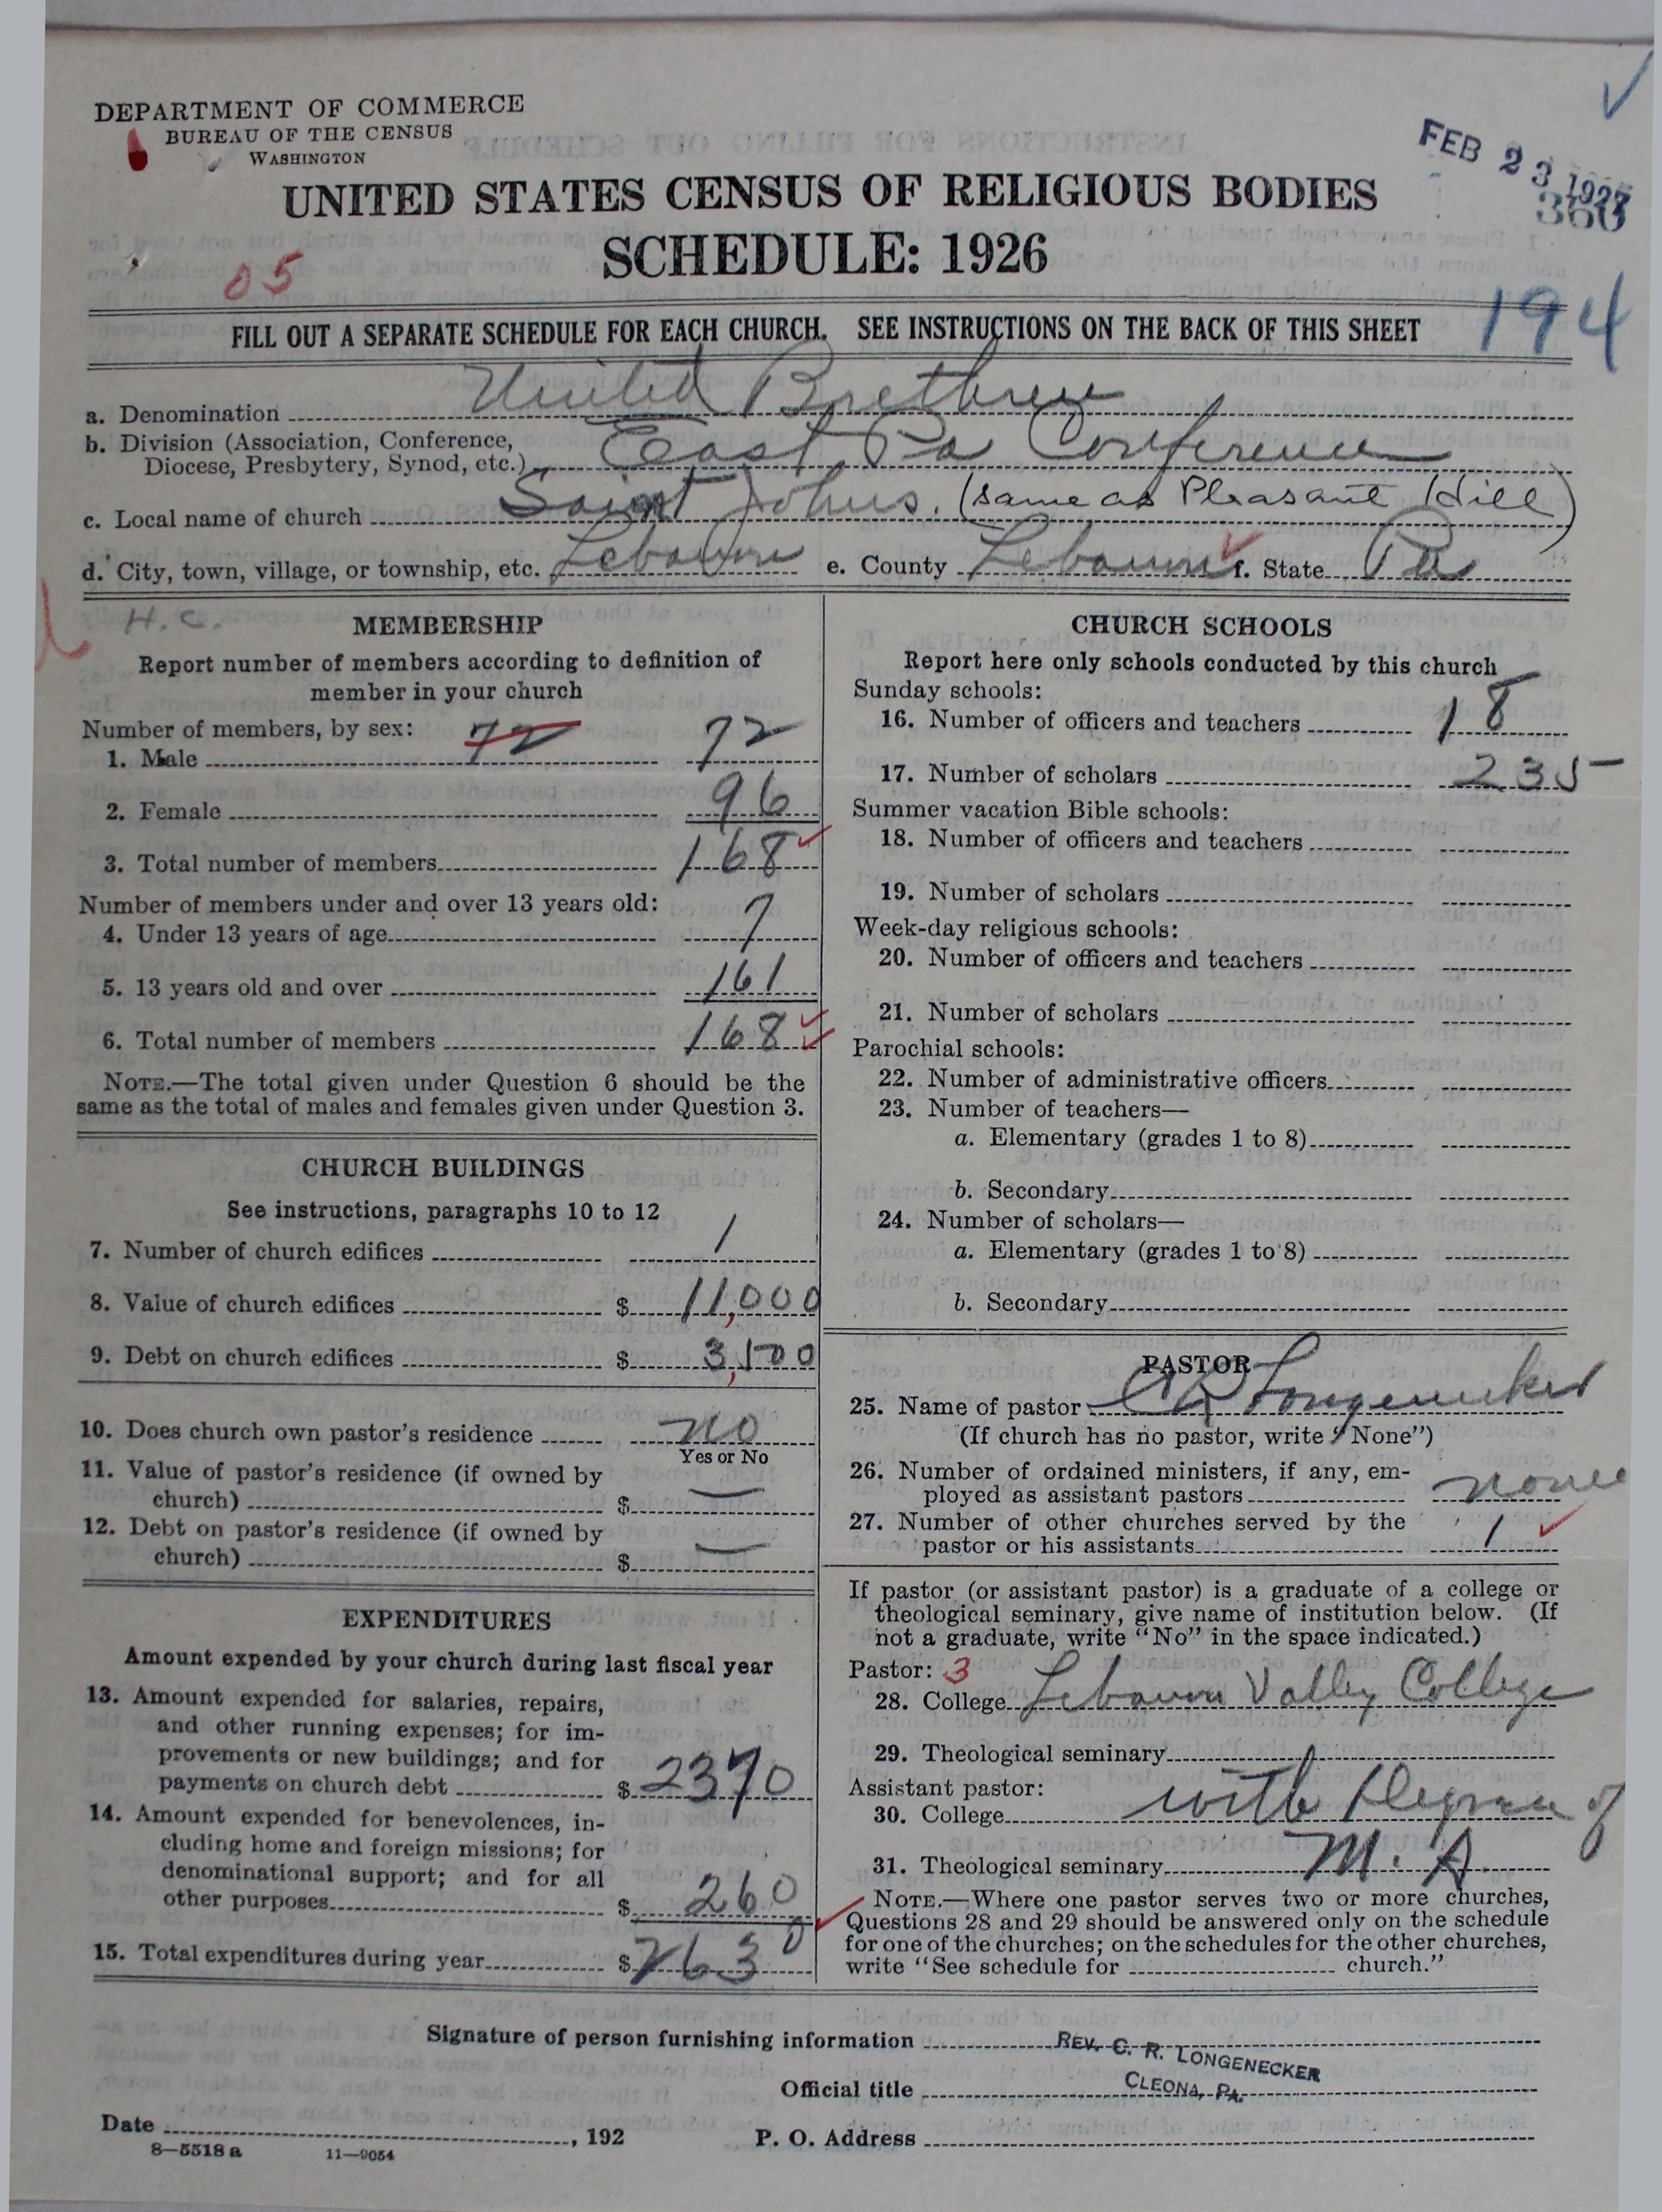 DEPARTMENT OF COMMERCE
BUREAU OF THE CENSUS
WASHINGTON
FEB 23 1927
360
UNITED STATES CENSUS OF RELIGIOUS BODIES
SCHEDULE: 1926
05
194
FILL OUT A SEPARATE SCHEDULE FOR EACH CHURCH. SEE INSTRUCTIONS ON THE BACK OF THIS SHEET
a. Denomination United Brethren
b. Division (Association, Conference,
Diocese, Presbytery, Synod, etc.) East Pa Conference
c. Local name of church Saint Johns. (same as Pleasant Hill)
d. City, town, village, or township, etc. Lebanon e. County Lebanon f. State Pa
H.C.
MEMBERSHIP
Report number of members according to definition of
member in your church
Number of members, by sex: 72
1. Male 72
2. Female 96
3. Total number of members 168
Number of members under and over 13 years old:
4. Under 13 years of age 7
5. 13 years old and over 161
6. Total number of members 168
NOTE.—The total given under Question 6 should be the
same as the total of males and females given under Question 3.
CHURCH BUILDINGS
See instructions, paragraphs 10 to 12
7. Number of church edifices 1
8. Value of church edifices $ 11,000
9. Debt on church edifices $ 3,500
10. Does church own pastor's residence no
Yes or No
11. Value of pastor's residence (if owned by
church) $ —
12. Debt on pastor's residence (if owned by
church) $ —
EXPENDITURES
Amount expended by your church during last fiscal year
13. Amount expended for salaries, repairs,
and other running expenses; for im-
provements or new buildings; and for
payments on church debt $ 2370
14. Amount expended for benevolences, in-
cluding home and foreign missions; for
denominational support; and for all
other purposes $ 260
15. Total expenditures during year $ 2630
CHURCH SCHOOLS
Report here only schools conducted by this church
Sunday schools:
16. Number of officers and teachers 18
17. Number of scholars 235
Summer vacation Bible schools:
18. Number of officers and teachers
19. Number of scholars
Week-day religious schools:
20. Number of officers and teachers
21. Number of scholars
Parochial schools:
22. Number of administrative officers
23. Number of teachers—
a. Elementary (grades 1 to 8)
b. Secondary
24. Number of scholars—
a. Elementary (grades 1 to 8)
b. Secondary
PASTOR
25. Name of pastor C R Longenecker
(If church has no pastor, write "None")
26. Number of ordained ministers, if any, em-
ployed as assistant pastors none
27. Number of other churches served by the
pastor or his assistants 1
If pastor (or assistant pastor) is a graduate of a college or
theological seminary, give name of institution below. (If
not a graduate, write "No" in the space indicated.)
Pastor: 3
28. College Lebanon Valley College
29. Theological seminary
Assistant pastor:
30. College with Degree of
31. Theological seminary M. A.
NOTE.—Where one pastor serves two or more churches,
Questions 28 and 29 should be answered only on the schedule
for one of the churches; on the schedules for the other churches,
write "See schedule for church."
Signature of person furnishing information REV. C. R. LONGENECKER
Official title CLEONA, PA.
Date , 192
P. O. Address
8—5518 a 11—9054